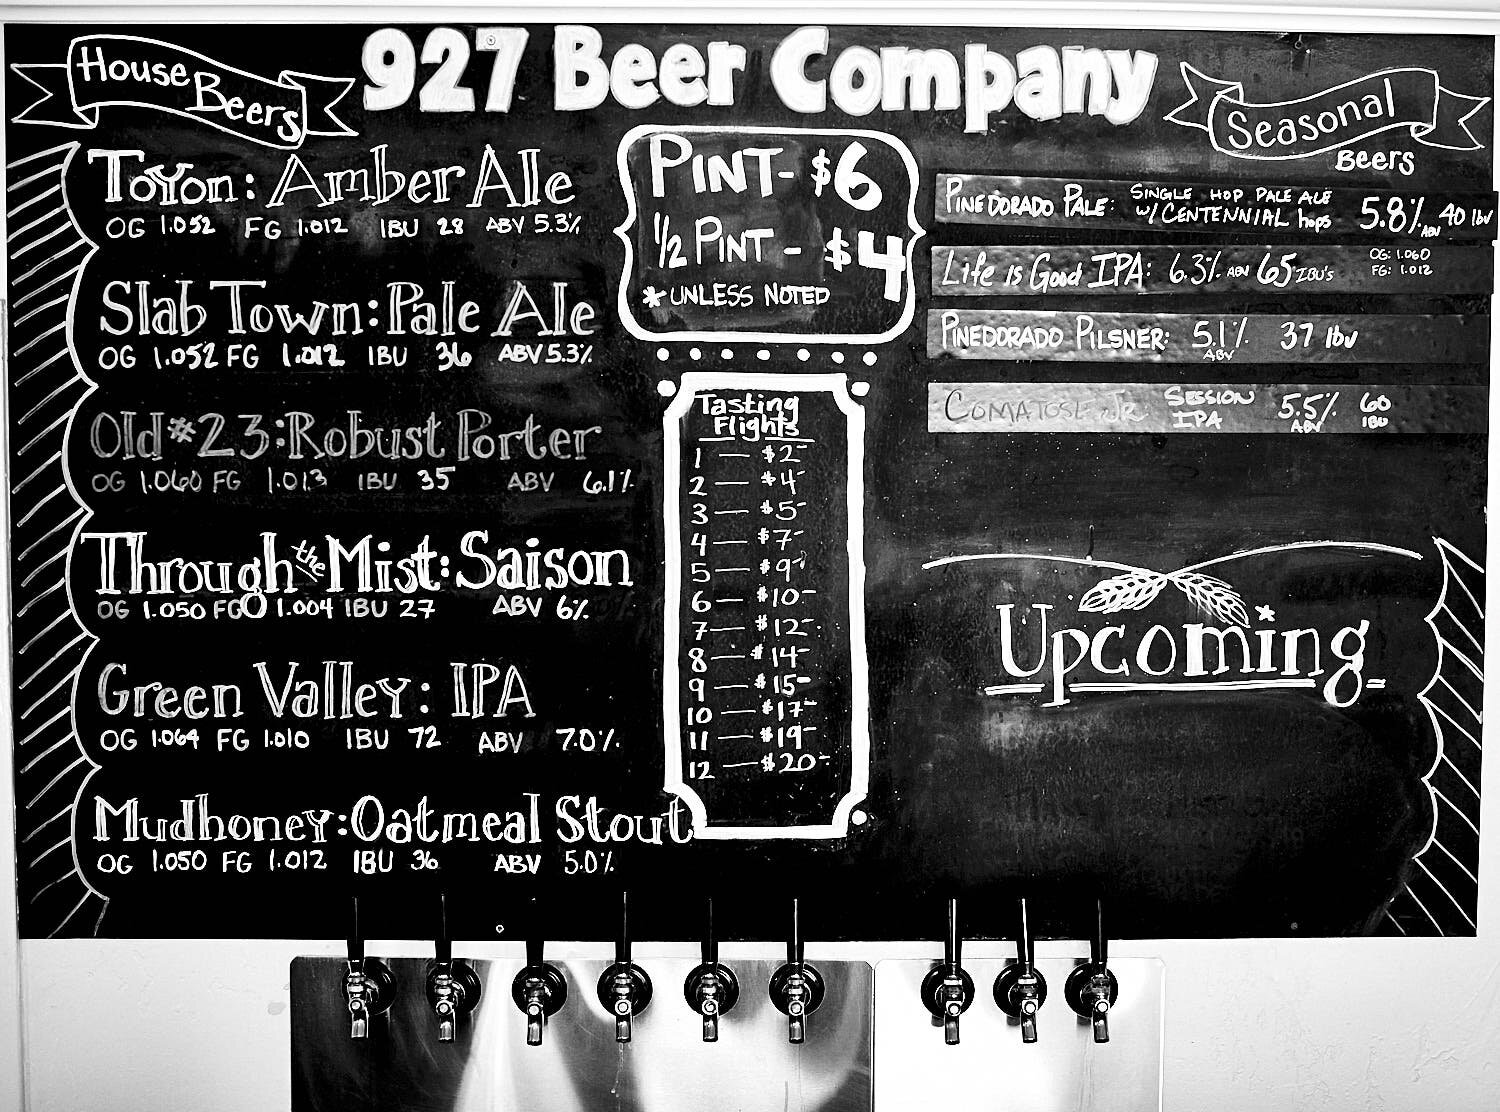 927 Beer Company
House
Beers
Toyon: Amber Ale
OG 1.052 FG 1.012 IBU 28 ABV 5.3%
Slab Town: Pale Ale
OG 1.052 FG 1.012 IBU 36 ABV 5.3%
Old #23: Robust Porter
OG 1.060 FG 1.013 IBU 35 ABV 6.1%
Through the Mist: Saison
OG 1.050 FG 1.004 IBU 27 ABV 6%
Green Valley: IPA
OG 1.064 FG 1.010 IBU 72 ABV 7.0%
Mudhoney: Oatmeal Stout
OG 1.050 FG 1.012 IBU 36 ABV 5.0%
PINT - $6
1/2 PINT - $4
* UNLESS NOTED
Tasting
Flights
1 — $2-
2 — $4-
3 — $5-
4 — $7-
5 — $9-
6 — $10-
7 — $12-
8 — $14-
9 — $15-
10 — $17-
11 — $19-
12 — $20-
Seasonal
Beers
PINEDORADO PALE: SINGLE HOP PALE ALE
W/ CENTENNIAL hops 5.8% ABV 40 IBU
Life is Good IPA: 6.3% ABV 65 IBU's OG: 1.060
FG: 1.012
PINEDORADO PILSNER: 5.1% ABV 37 IBU
COMATOSE JR SESSION
IPA 5.5% ABV 60 IBU
Upcoming